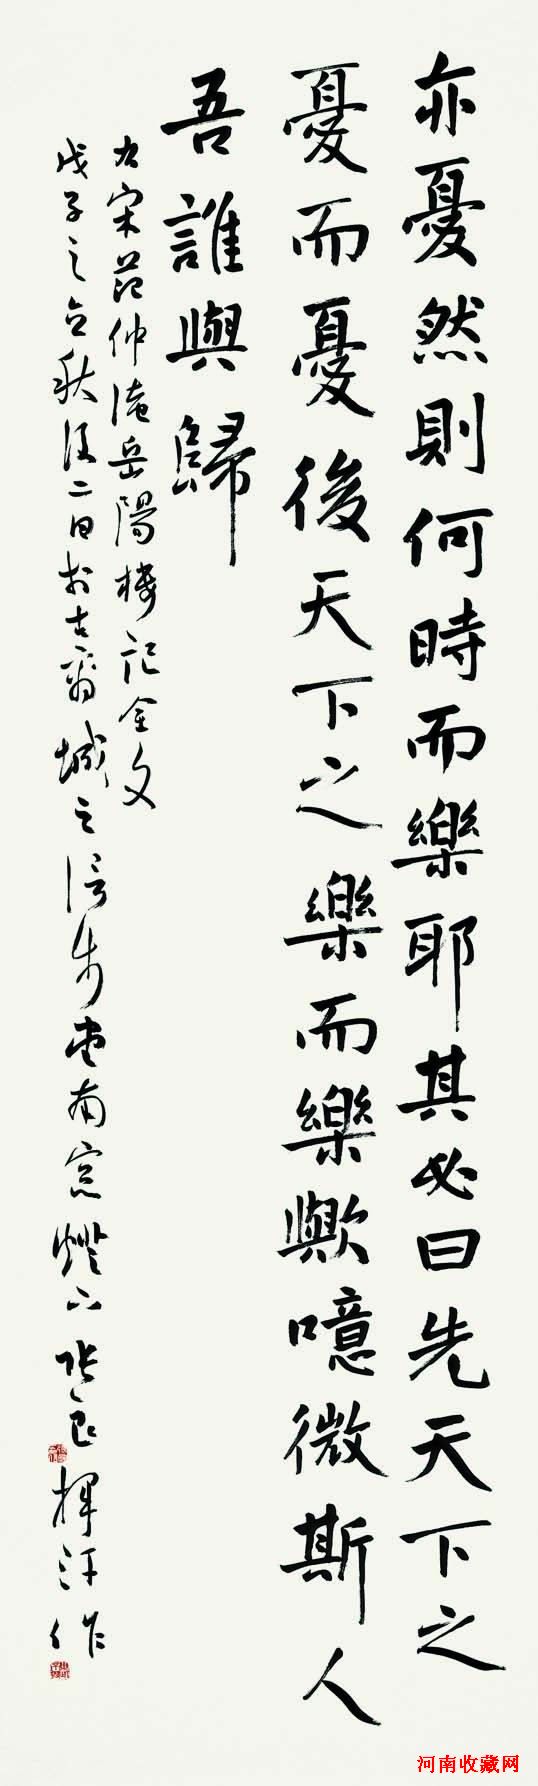 亦憂然則何時而樂耶其必曰先天下之
憂而憂後天下之樂而樂歟噫微斯人
吾誰與歸
右宋范仲淹岳陽樓記全文
戊子之立秋後二日於古商城之信步堂南窓燈下張良揮汗作
河南收藏网